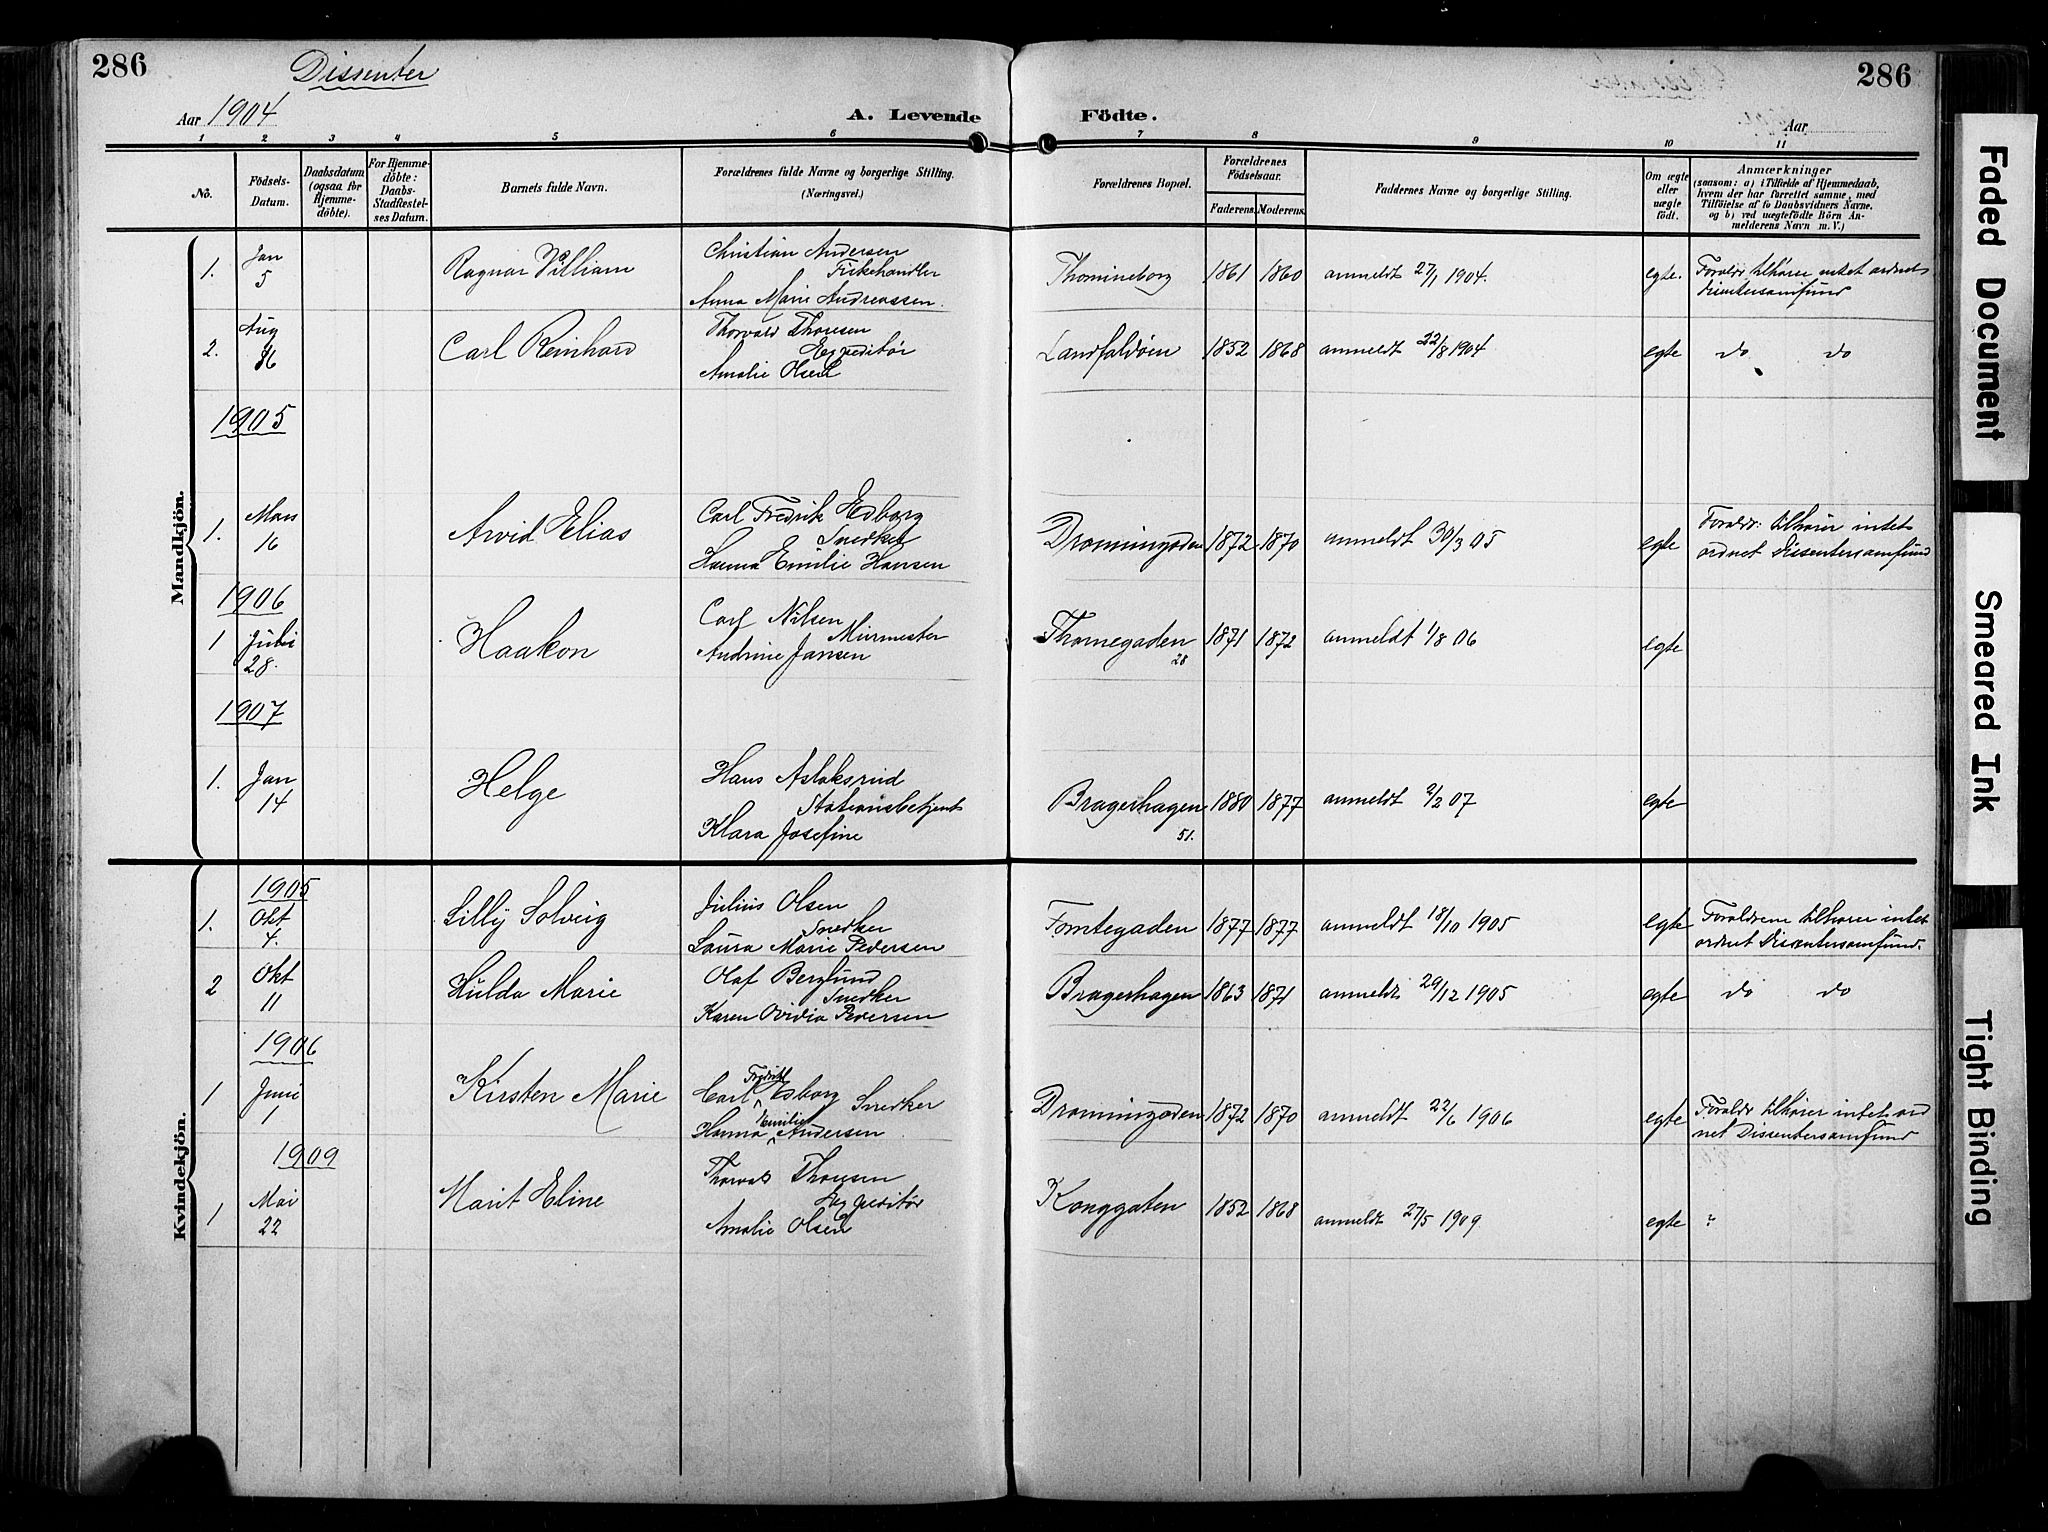 286
Dissenter
Aar 1904
A. Levende Födte.
Aar
286
1 2 3 4 5 6 7 8 9 10 11
No.
Födsels-
Datum.
Daabsdatum
(ogsaa for
Hjemme-
döbte).
For Hjemme-
döbte:
Daabs-
Stadfæstel-
ses Datum.
Barnets fulde Navn.
Forældrenes fulde Navne og borgerlige Stilling.
(Næringsvei.)
Forældrenes Bopæl.
Forældrenes
Födselsaar.
Faderens. Moderens.
Faddernes Navne og borgerlige Stilling.
Om ægte
eller
uægte
födt.
Anmærkninger
(saasom: a) i Tilfælde af Hjemmedaab,
hvem der har forrettet samme, med
Tilföielse af to Daabsvidners Navne,
og b) ved uægtefödte Börn An-
melderens Navn m. V.)
Mandkjön.
1. Jan 5 Ragnar William
Christian Andersen
Fiskehandler
Anna Marie Andreassen.
Thomineborg 1861 1860 anmeldt 27/1 1904. egte.
Foraldr tilhører intet ordnet
Disentersamfund
2. Aug 16 Carl Reinhard
Thorvald Thoresen
Expeditør
Amalie Olsen
Landfaldøen 1852 1868 anmeldt 22/8 1904 egte do do
1905
1. Mars 16 Arvid Elias
Carl Fredrik Edborg
Snedker
Hanna Emilie Hansen
Dronninggaden 1872 1870 anmeldt 30/3 05 egte
Foraldr: tilhører intet
ordnet Dissentersamfund
1906
1 Juli 28. Haakon
Carl Nilsen
Murmester
Andrine Jansen
Thornegaden 28 1871 1872 anmeldt 1/8 06 egte
1907
1. Jan 14 Helge
Hans Aslaksrud
Stationsbetjent
Klara Josefine
Bragerhagen 51. 1880 1877 anmeldt 2/2 07 egte
Kvindekjön.
1905
1. Okt 4. Lilly Solveig
Julius Olsen
Snedker
Laura Marie Pedersen
Tomtegaden 1877 1877 anmeldt 18/10 1905 egte
Foraldrene tilhører intet
ordnet Dissentersamfund.
2 Okt 11 Hulda Marie
Olaf Berglund
Snedker
Karen Ovidia Pedersen
Bragerhagen 1863 1871 anmeldt 29/12 1905 egte do do
1906
1 Juni 1 Kirsten Marie
Carl Fredrik Edborg Snedker
Hanna Emilie Andersen
Dronninggaden 1872 1870 anmeldt 22/6 1906 egte
Foraldr tilhører intet ord
net Dissentersamfund
1909
1 Mai 22 Marit Eline
Thorvald Thoresen
Expeditør
Amalie Olsen
Konggaten 1852 1868 anmeldt 27/5 1909 egte ?
Faded Document
Smeared Ink
Tight Binding